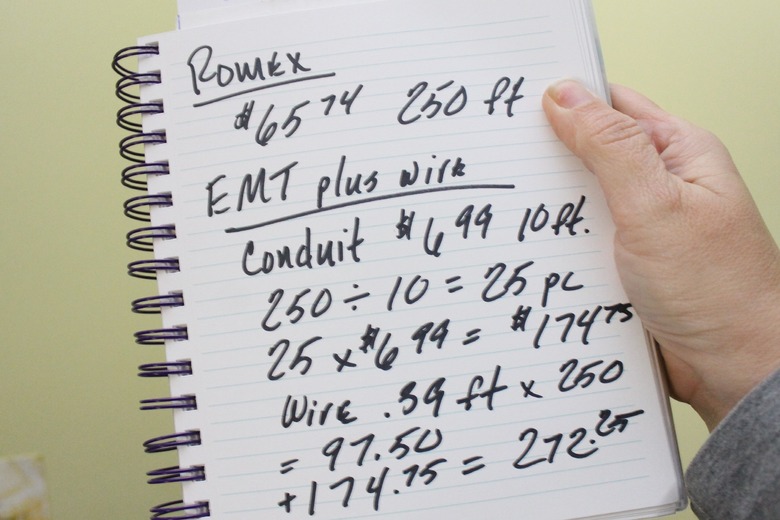 Romex
$65 74 250 ft
EMT plus wire
Conduit $6 99 10 ft.
250 ÷ 10 = 25 pc
25 x $6 99 = $174 75
Wire .39 ft x 250
= 97.50
+174.75 = 272.25